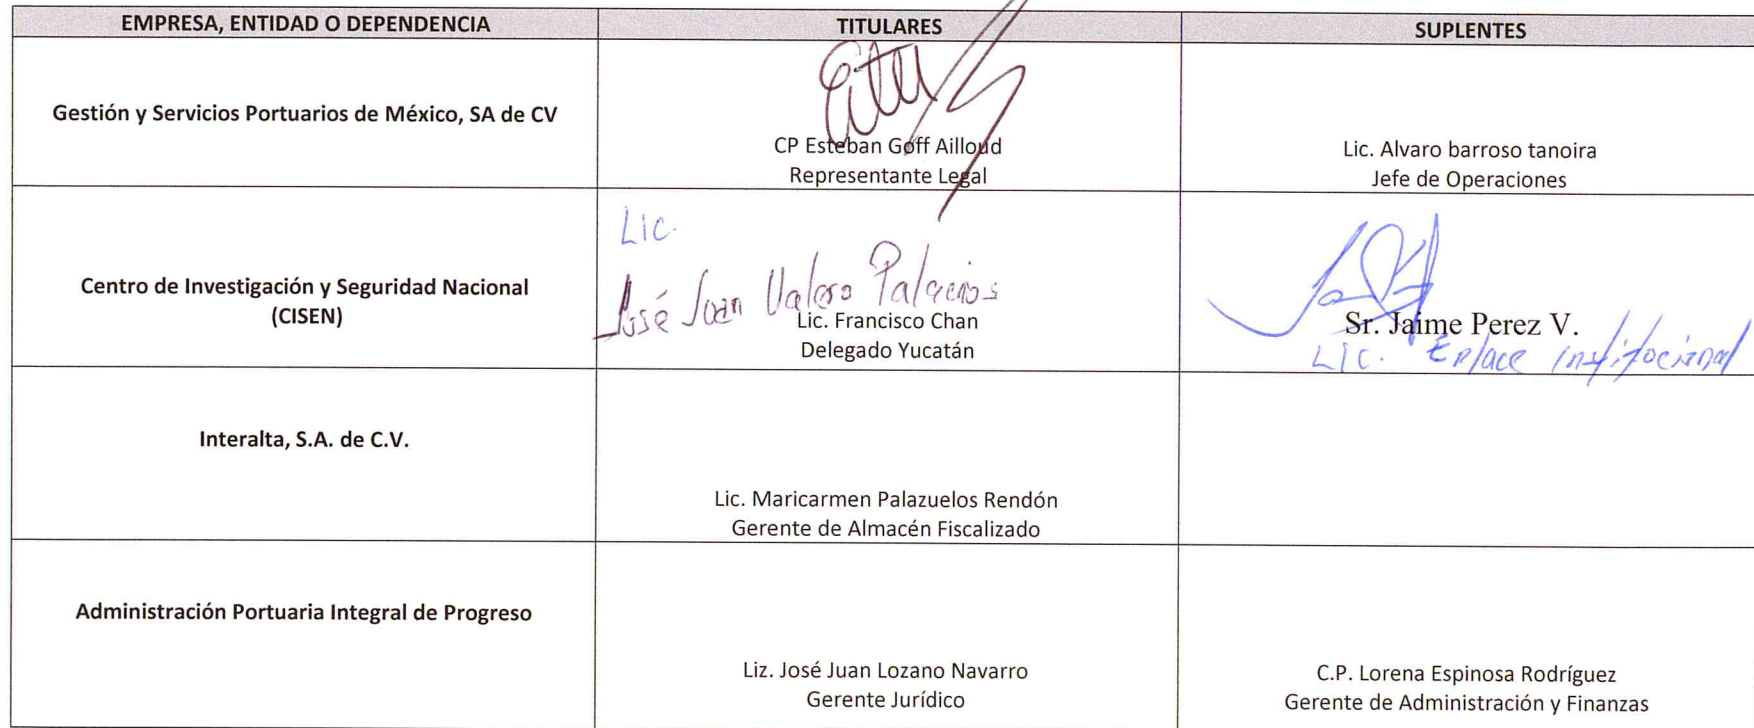 EMPRESA, ENTIDAD O DEPENDENCIA
TITULARES
SUPLENTES
Gestión y Servicios Portuarios de México, SA de CV
CP Esteban Goff Ailloud
Representante Legal
Lic. Alvaro barroso tanoira
Jefe de Operaciones
Centro de Investigación y Seguridad Nacional
(CISEN)
Lic.
José Juan Valero Palacios
Lic. Francisco Chan
Delegado Yucatán
Sr. Jaime Perez V.
Lic. Enlace institucional
Interalta, S.A. de C.V.
Lic. Maricarmen Palazuelos Rendón
Gerente de Almacén Fiscalizado
Administración Portuaria Integral de Progreso
Liz. José Juan Lozano Navarro
Gerente Jurídico
C.P. Lorena Espinosa Rodríguez
Gerente de Administración y Finanzas